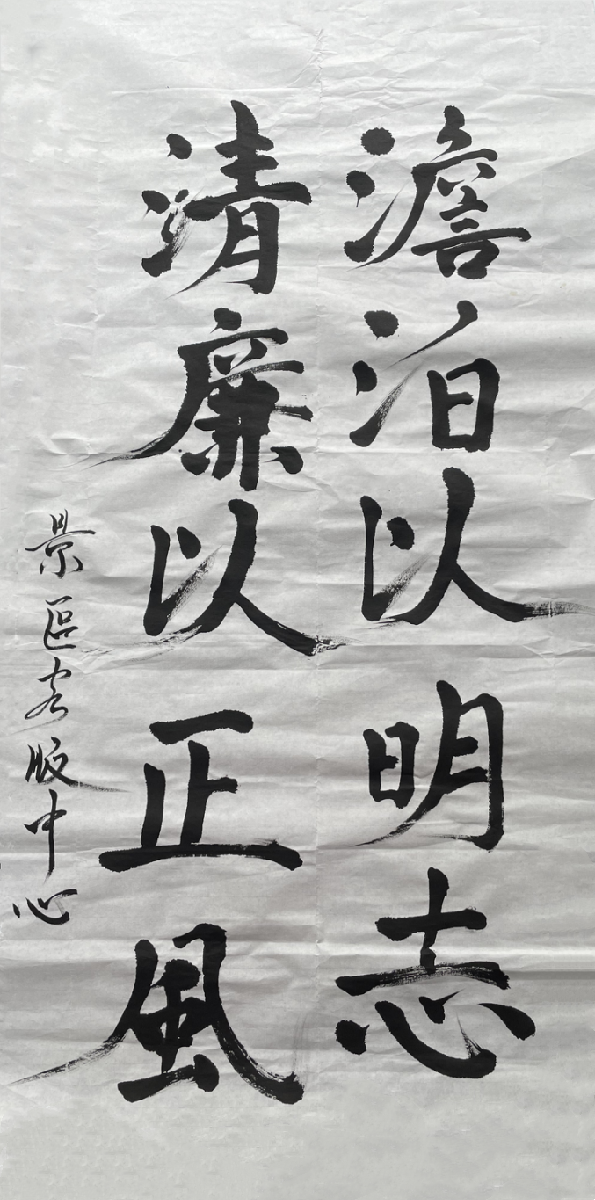 澹泊以明志
清廉以正風
景區客服中心